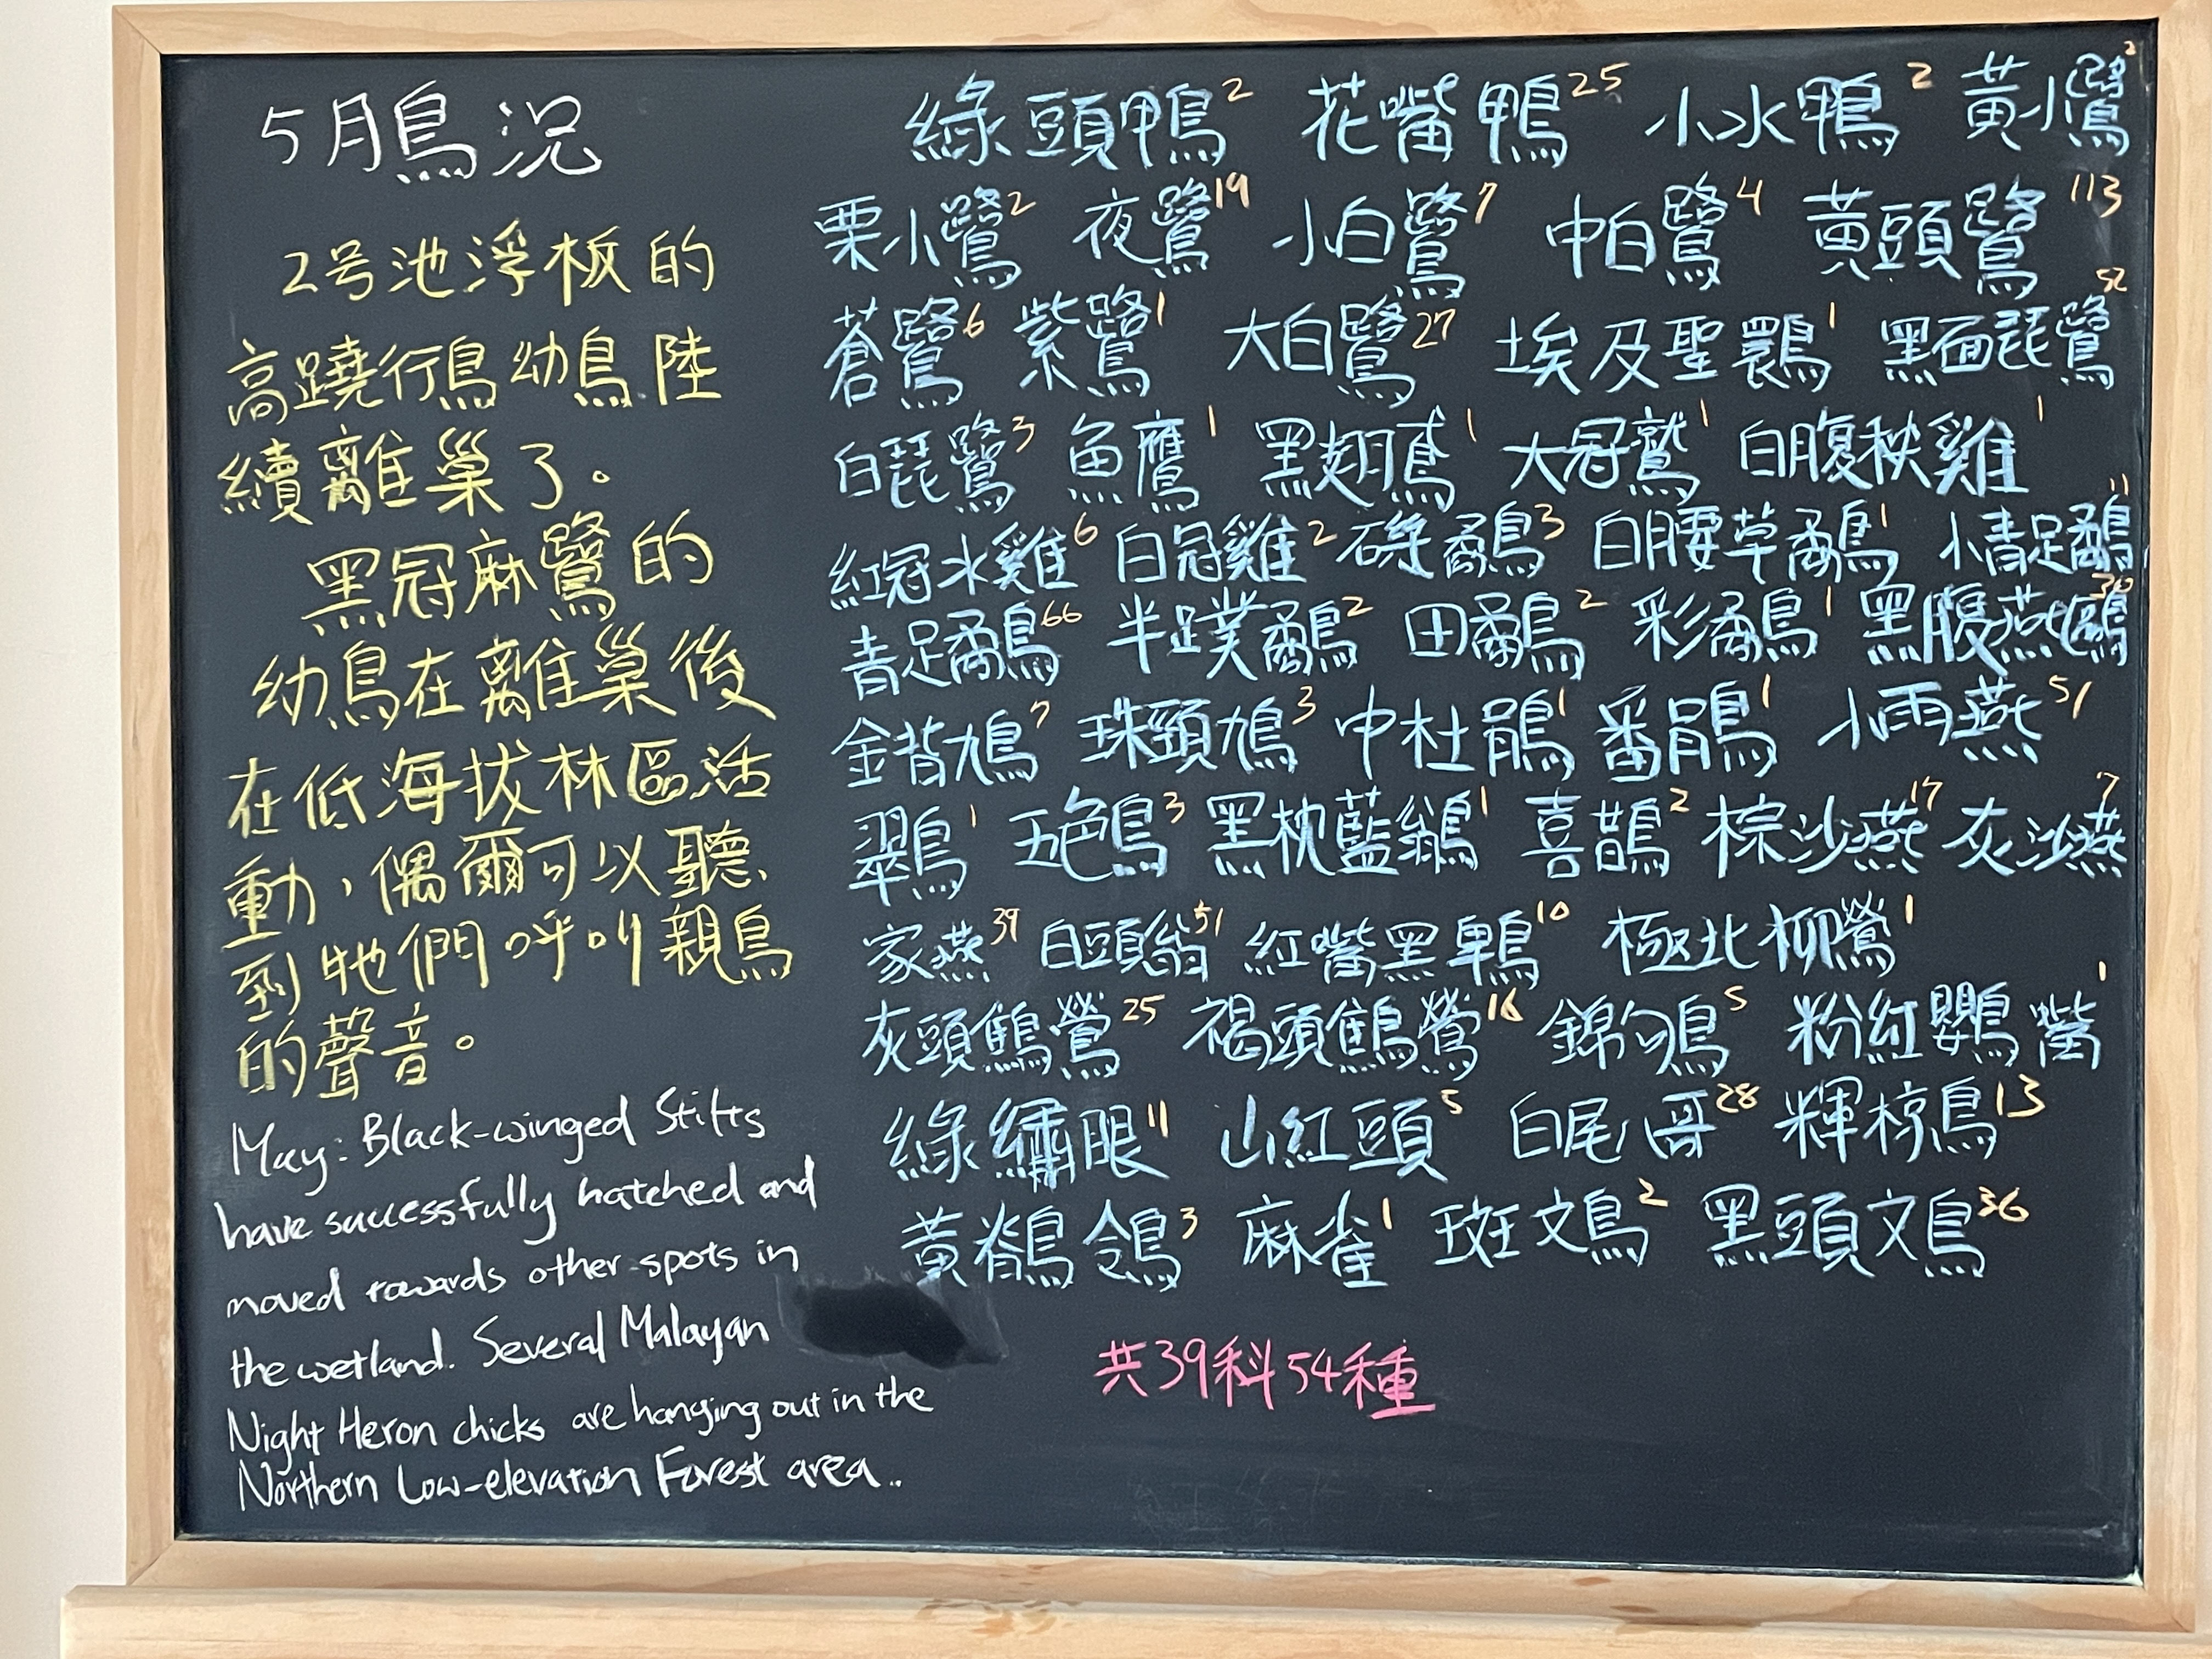 5月鳥況
2号池浮板的
高蹺行鳥幼鳥陸
續離巢了。
黑冠麻鷺的
幼鳥在離巢後
在低海拔林區活
動，偶爾可以聽
到牠們呼叫親鳥
的聲音。
May: Black-winged Stilts
have successfully hatched and
moved towards other spots in
the wetland. Several Malayan
Night Heron chicks are hanging out in the
Northern Low-elevation Forest area..
綠頭鴨2 花嘴鴨25 小水鴨2 黃小鷺2
栗小鷺2 夜鷺19 小白鷺7 中白鷺4 黃頭鷺113
蒼鷺6 紫鷺1 大白鷺27 埃及聖鹮1 黑面琵鷺52
白琵鷺3 魚鷹1 黑翅鳶1 大冠鷲1 白腹秧雞1
紅冠水雞6 白冠雞2 磯鷸3 白腰草鷸1 小青足鷸11
青足鷸66 半蹼鷸2 田鷸2 彩鷸1 黑腹燕鷗30
金背鳩7 珠頸鳩3 中杜鵑1 番鵑1 小雨燕51
翠鳥1 五色鳥3 黑枕藍鶲1 喜鵲2 棕沙燕17 灰沙燕7
家燕39 白頭翁51 紅嘴黑鵯10 極北柳鶯1
灰頭鷦鶯25 褐頭鷦鶯16 錦鳥5 粉紅鸚嘴1
綠繡眼11 山紅頭5 白尾八哥28 輝椋鳥13
黃鶺鴒3 麻雀1 斑文鳥2 黑頭文鳥36
共39科54種